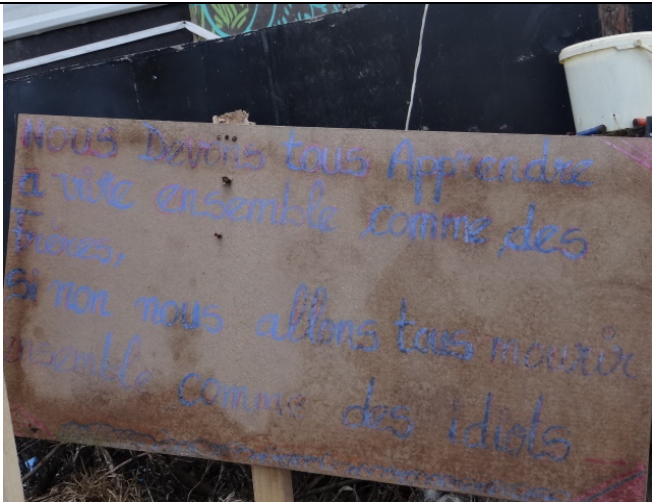 Nous Devons tous Apprendre
à vivre ensemble comme des
Frères,
si non nous allons tous mourir
ensemble comme des idiots